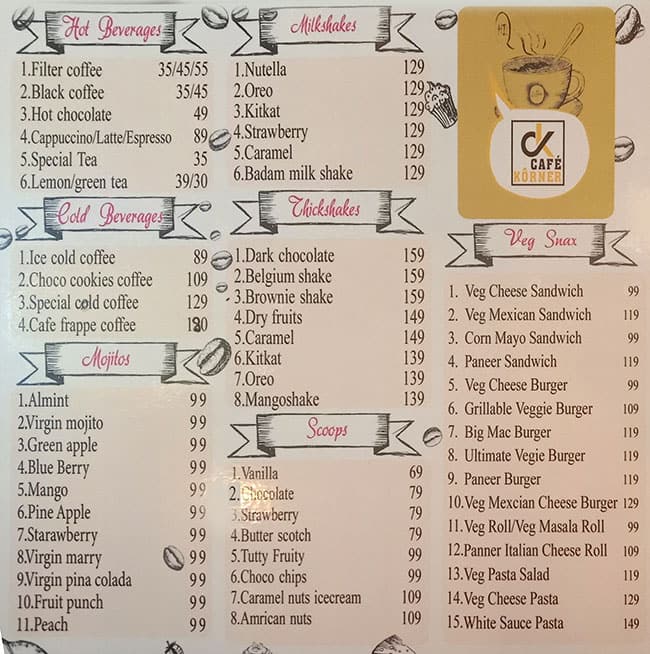 Hot Beverages
1.Filter coffee 35/45/55
2.Black coffee 35/45
3.Hot chocolate 49
4.Cappuccino/Latte/Espresso 89
5.Special Tea 35
6.Lemon/green tea 39/30
Cold Beverages
1.Ice cold coffee 89
2.Choco cookies coffee 109
3.Special cold coffee 129
4.Cafe frappe coffee
Mojitos
1.Almint 99
2.Virgin mojito 99
3.Green apple 99
4.Blue Berry 99
5.Mango 99
6.Pine Apple 99
7.Starawberry 99
8.Virgin marry 99
9.Virgin pina colada 99
10.Fruit punch 99
11.Peach 99
Milkshakes
1.Nutella 129
2.Oreo 129
3.Kitkat 129
4.Strawberry 129
5.Caramel 129
6.Badam milk shake 129
Thickshakes
1.Dark chocolate 159
2.Belgium shake 159
3.Brownie shake 159
4.Dry fruits 149
5.Caramel 149
6.Kitkat 139
7.Oreo 139
8.Mangoshake 139
Scoops
1.Vanilla 69
2.Chocolate 79
3.Strawberry 79
4.Butter scotch 79
5.Tutty Fruity 99
6.Choco chips 99
7.Caramel nuts icecream 109
8.Amrican nuts 109
CAFÉ
KÖRNER
Veg Snax
1. Veg Cheese Sandwich 99
2. Veg Mexican Sandwich 119
3. Corn Mayo Sandwich 99
4. Paneer Sandwich 119
5. Veg Cheese Burger 99
6. Grillable Veggie Burger 109
7. Big Mac Burger 119
8. Ultimate Vegie Burger 119
9. Paneer Burger 119
10.Veg Mexcian Cheese Burger 129
11.Veg Roll/Veg Masala Roll 99
12.Panner Italian Cheese Roll 109
13.Veg Pasta Salad 119
14.Veg Cheese Pasta 129
15.White Sauce Pasta 149